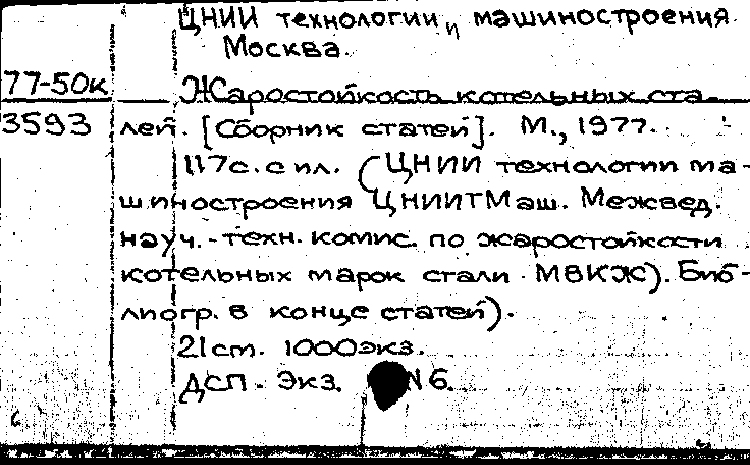 ЦНИИ технологии и машиностроения.
Москва.
77-50к Жаростойкость котельных ста-
3593 лей. [Сборник статей]. М., 1977.
117с. с ил. (ЦНИИ технологии ма-
шиностроения ЦНИИТМаш. Межвед.
науч.-техн. комис. по жаростойкости
котельных марок стали МВКЖ). Биб-
лиогр. в конце статей).
21см. 1000экз.
ДСП. Экз. N6.